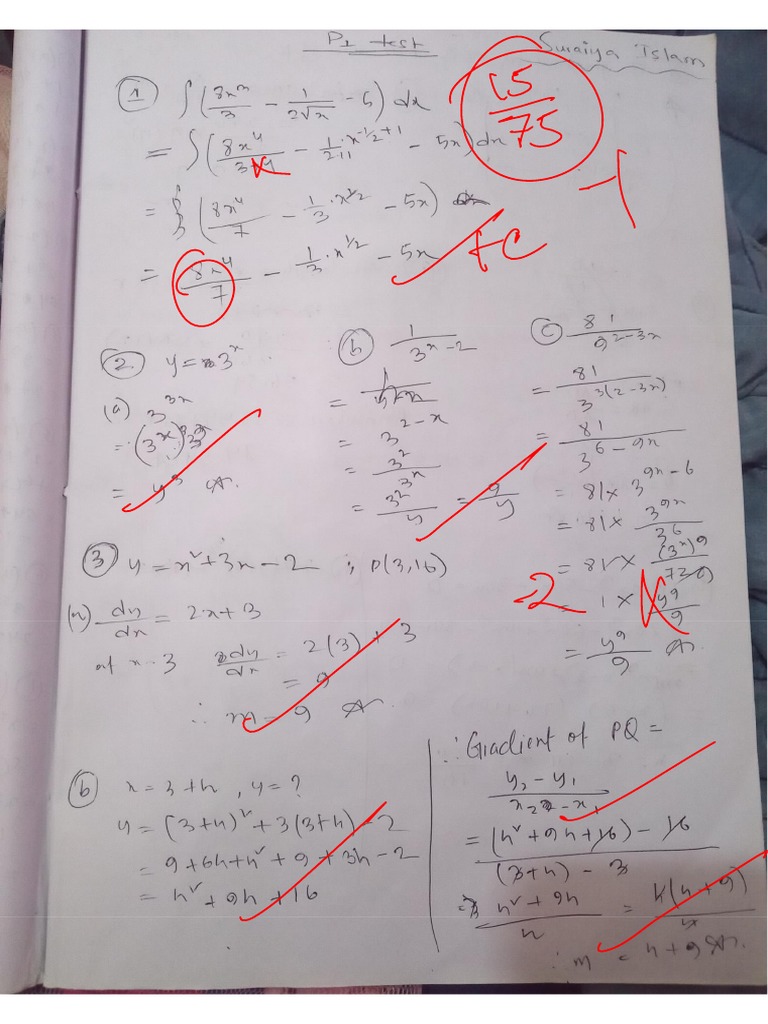 P1 test
Suraiya Islam
15/75
-1
① ∫(8x³/3 - 1/(2√x) - 5) dx
= ∫(8x⁴/3 - 1/(2+1) · x^(-1/2+1) - 5x) dx
= ∫(8x⁴/7 - 1/3 · x^(1/2) - 5x)
= 8x⁴/7 - 1/3 · x^(1/2) - 5x + c
② y = 3^x
(a) 3^(3x)
= (3^x)^3
= y³ A.
(b) 1/(3^(x-2))
= 3^(2-x)
= 3²/3^x
= 3²/y = 9/y
(c) 81/(9^(2-3x))
= 81/(3^(3(2-3x)))
= 81/(3^(6-9x))
= 81 × 3^(9x-6)
= 81 × 3^(9x)/3^6
= 81 × (3^x)^9/729
= 1 × y⁹/9
-2
= y⁹/9 A.
③ y = x² + 3x - 2 ; P(3,16)
(a) dy/dx = 2x + 3
at x = 3 dy/dx = 2(3) + 3
= 9
∴ m = 9 A.
(b) x = 3+h , y = ?
y = (3+h)² + 3(3+h) - 2
= 9 + 6h + h² + 9 + 3h - 2
= h² + 9h + 16
∴ Gradient of PQ =
(y₂ - y₁)/(x₂ - x₁)
= ((h² + 9h + 16) - 16)/((3+h) - 3)
= (h² + 9h)/h = h(h+9)/h
∴ m = h + 9 A.